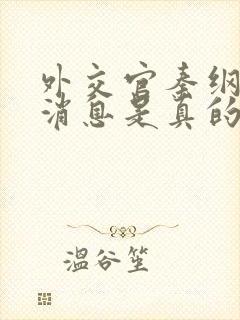 外交官秦纲
消息是真的
温谷笙